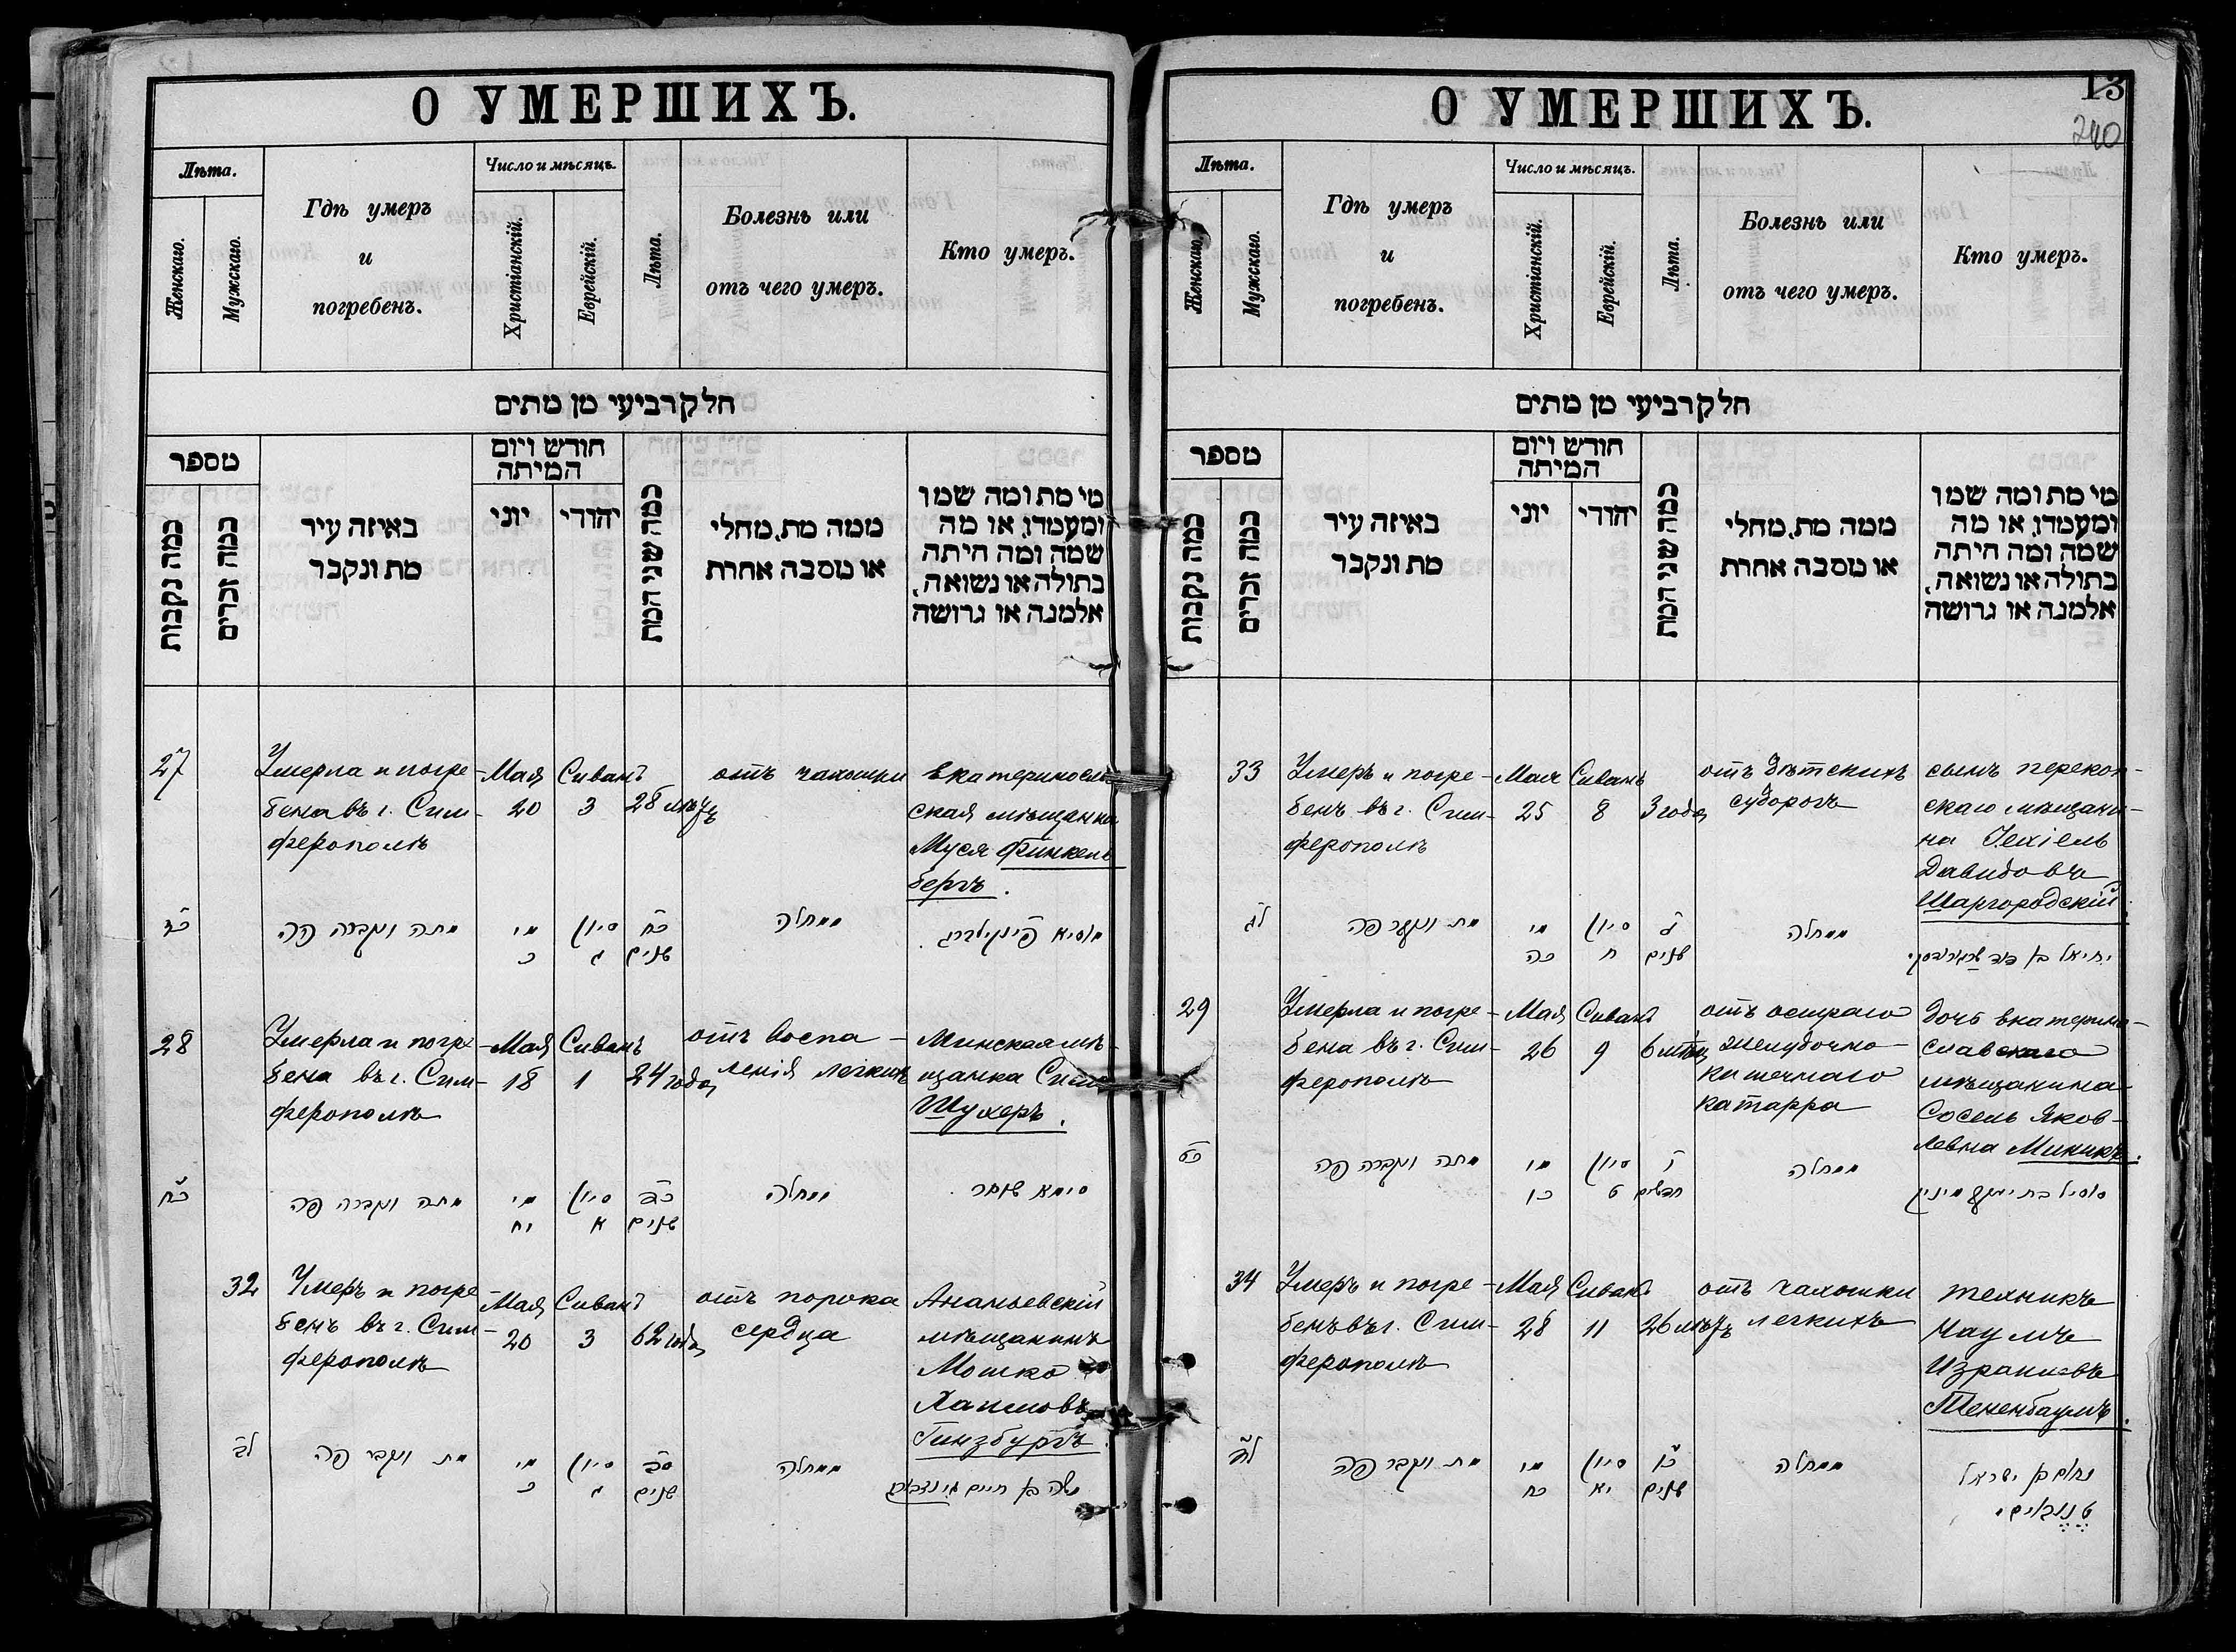 О УМЕРШИХЪ.
Лѣта.
Женскаго.
Мужскаго.
Гдѣ умеръ
и
погребенъ.
Число и мѣсяцъ.
Христіанскій.
Еврейскій.
Лѣта.
Болезнь или
отъ чего умеръ.
Кто умеръ.
חלק רביעי מן מתים
מספר
כמה נקבות
כמה זכרים
באיזה עיר
מת ונקבר
חודש ויום
המיתה
יוני
יהודי
כמה שני המת
ממה מת, מחלי
או מסבה אחרת
מי מת ומה שמו
ומעמדו, או מה
שמה ומה היתה
בתולה או נשואה,
אלמנה או גרושה
27
Умерла и погре-
бена въ г. Сим-
ферополѣ
Мая
20
Сиванъ
3
28 лѣтъ
отъ чахотки
Екатеринослав
ская мѣщанка
Муся Финкель
бергъ.
כז
מתה ונקברה פה
מי
כ
סיון
ג
כח
שנים
ממחלה
מוסיא פינקילברג.
28
Умерла и погре-
бена въ г. Сим-
ферополѣ
Мая
18
Сиванъ
1
24 года
отъ воспа-
ленія легкихъ
Минская мѣ-
щанка Сима
Шухеръ.
כח
מתה ונקברה פה
מי
יח
סיון
א
כד
שנים
ממחלה
סימא שוחר.
32
Умеръ и погре
бенъ въ г. Сим-
ферополѣ
Мая
20
Сиванъ
3
62 года
отъ порока
сердца
Ананьевскій
мѣщанинъ
Мошко
Хаимовъ
Гинзбургъ.
לב
מת ונקבר פה
מי
כ
סיון
ג
סב
שנים
ממחלה
משה בן חיים גינזבורג
13
240
О УМЕРШИХЪ.
Лѣта.
Женскаго.
Мужскаго.
Гдѣ умеръ
и
погребенъ.
Число и мѣсяцъ.
Христіанскій.
Еврейскій.
Лѣта.
Болезнь или
отъ чего умеръ.
Кто умеръ.
חלק רביעי מן מתים
מספר
כמה נקבות
כמה זכרים
באיזה עיר
מת ונקבר
חודש ויום
המיתה
יוני
יהודי
כמה שני המת
ממה מת, מחלי
או מסבה אחרת
מי מת ומה שמו
ומעמדו, או מה
שמה ומה היתה
בתולה או נשואה,
אלמנה או גרושה
33
Умеръ и погре-
бенъ въ г. Сим-
ферополѣ
Мая
25
Сиванъ
8
3 года
отъ дѣтскихъ
судорогъ
сынъ перекоп-
скаго мѣщани-
на Іехіель
Давидовъ
Шаргородскій.
לג
מת ונקבר פה
מי
כה
סיון
ח
ג
שנים
ממחלה
יחיאל בן דוד שרגורודסקי.
29
Умерла и погре-
бена въ г. Сим-
ферополѣ
Мая
26
Сиванъ
9
6 мѣсяц
отъ остраго
желудочно-
кишечнаго
катарра
дочь екатерино-
славскаго
мѣщанина
Сосель Яков-
левна
כט
מתה ונקברה פה
מי
כו
סיון
ט
ו
חדשים
ממחלה
סוסיל בת יעקב
34
Умеръ и погре-
бенъ въ г. Сим-
ферополѣ
Мая
28
Сиванъ
11
26 лѣтъ
отъ чахотки
легкихъ
техникъ
Наумъ
Израилевъ
Тененбаумъ.
לד
מת ונקבר פה
מי
כח
סיון
יא
כו
שנים
ממחלה
נחום בן ישראל
טננבוים.